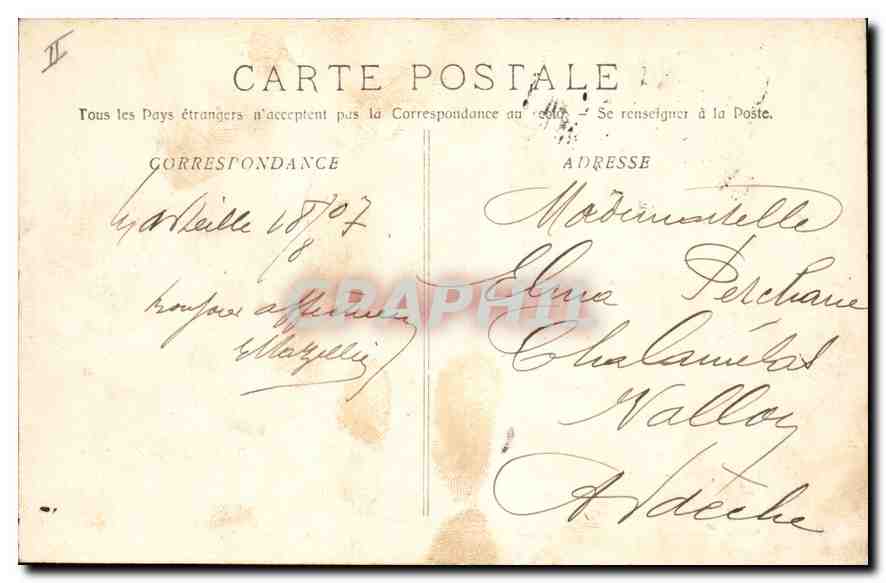 II
CARTE POSTALE
Tous les Pays étrangers n'acceptent pas la Correspondance au recto. - Se renseigner à la Poste.
CORRESPONDANCE
Marseille 18/8 07
ADRESSE
Mademoiselle
Elma
Vallon
Ardèche
CPAPHIL